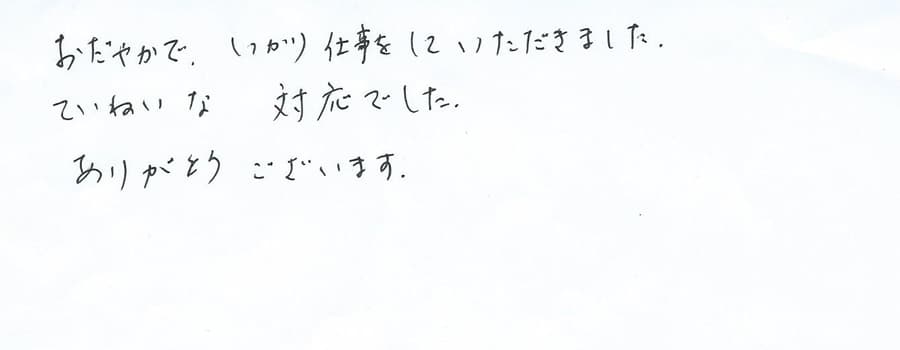 おだやかで、しっかり仕事をしていただきました.
ていねいな 対応でした.
ありがとうございます.